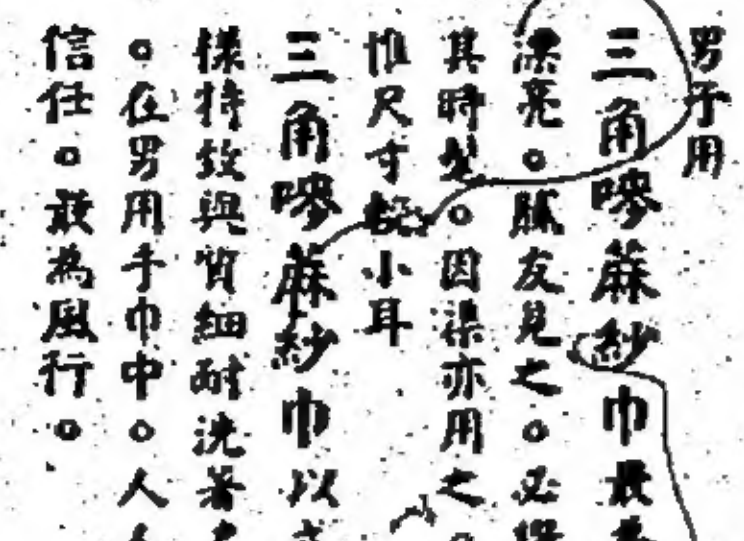 男子用
三角嗲蔴紗巾最為
漂亮。膩友見之。必
其時髦。因渠亦用之。
惟尺寸較小耳
三角嗲蔴紗巾以
様特致與質細耐洗著
。在男用手巾中。人
信任。最為風行。